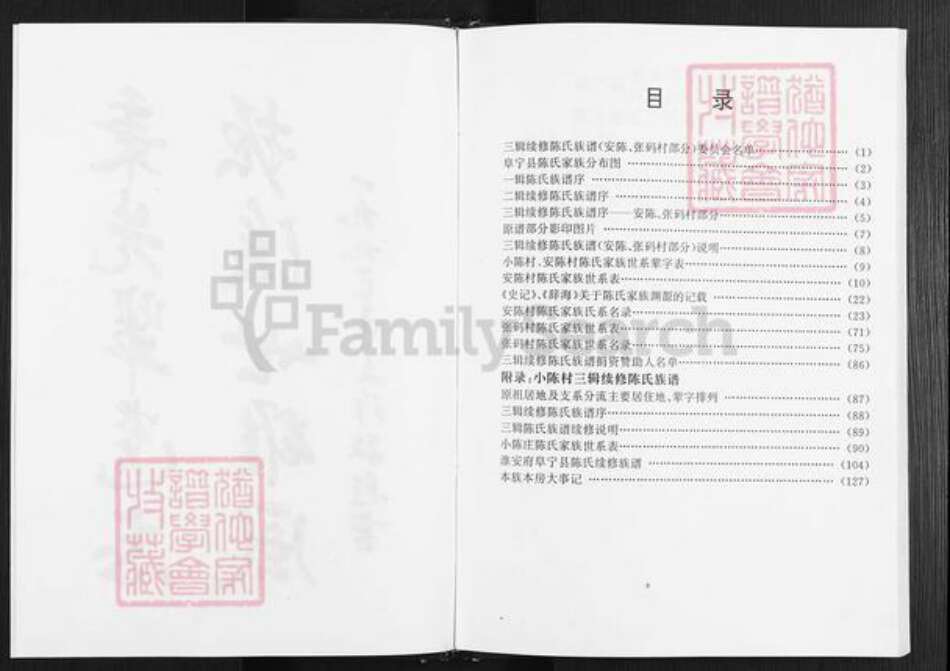 目 录
三辑续修陈氏族谱(安陈、张码村部分)委员会名单 (1)
阜宁县陈氏家族分布图 (2)
一辑陈氏族谱序 (3)
二辑续修陈氏族谱序 (4)
三辑续修陈氏族谱序——安陈、张码村部分 (5)
原谱部分影印图片 (7)
三辑续修陈氏族谱(安陈、张码村部分)说明 (8)
小陈村、安陈村陈氏家族世系辈字表 (9)
安陈村陈氏家族世系表 (10)
《史记》、《辞海》关于陈氏家族渊源的记载 (22)
安陈村陈氏家族氏系名录 (23)
张码村陈氏家族世系表 (71)
张码村陈氏家族世系名录 (75)
三辑续修陈氏族谱捐资赞助人名单 (86)
附录:小陈村三辑续修陈氏族谱
原祖居地及支系分流主要居住地、辈字排列 (87)
三辑续修陈氏族谱序 (88)
三辑陈氏族谱续修说明 (89)
小陈庄陈氏家族世系表 (90)
淮安府阜宁县陈氏续修族谱 (104)
本族本房大事记 (127)
FamilySearch